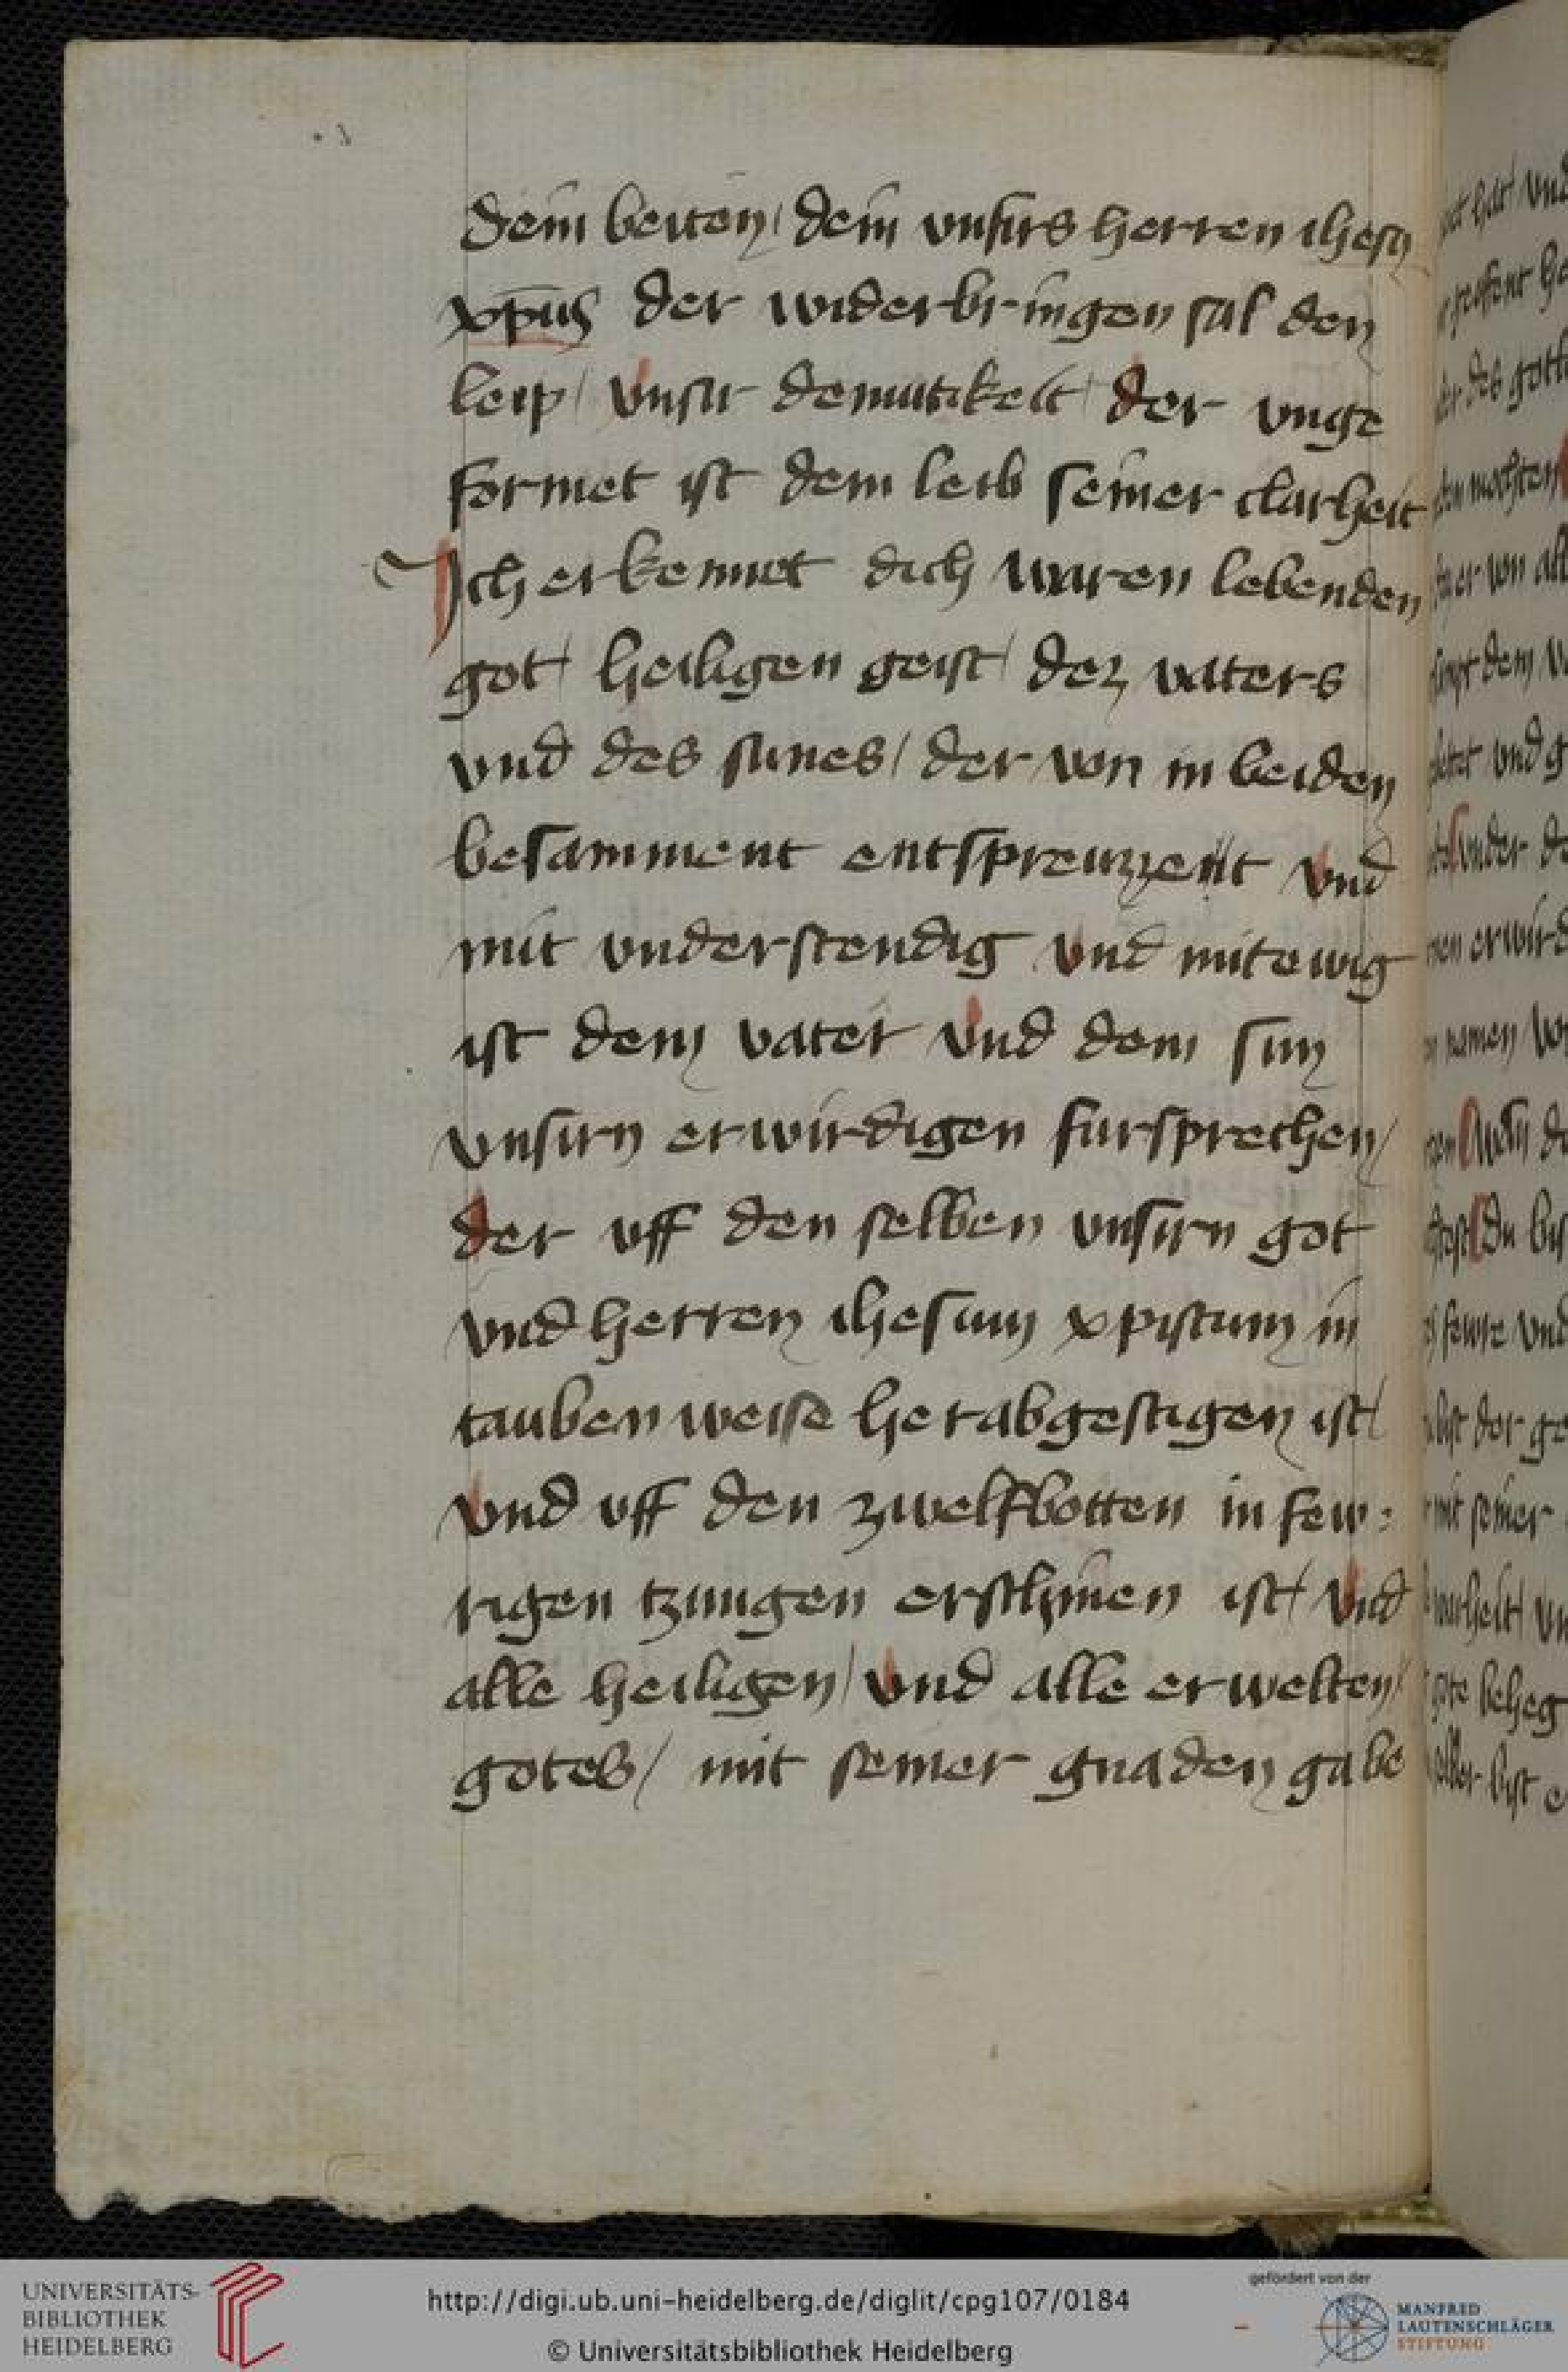 dein beiten / dein vnsirs herren ihesu
xpūs der widerbringen sal den
leip / vnsir demutikeit / der vnge
formet ist dem leib seiner clarheit
Ich erkennet dich waren lebenden
got / heiligen geist / dez vaters
vnd des sunes / der von in beiden
besamment entspreuzzent vnd
mit vnderstendig vnd mitewig
ist dem vater vnd dem sun
vnsirn erwirdigen fursprechen /
der vff den selben vnsirn got
vnd herren ihesum xpistum in
tauben weise herabgestigen ist /
vnd vff den zwelfbotten in few:
rigen tzungen erschinen ist / vnd
alle heiligen / vnd alle erwelten /
gotes / mit seiner gnaden gabe
UNIVERSITÄTS-
BIBLIOTHEK
HEIDELBERG
http://digi.ub.uni-heidelberg.de/diglit/cpg107/0184
© Universitätsbibliothek Heidelberg
gefördert von der
MANFRED
LAUTENSCHLÄGER
STIFTUNG